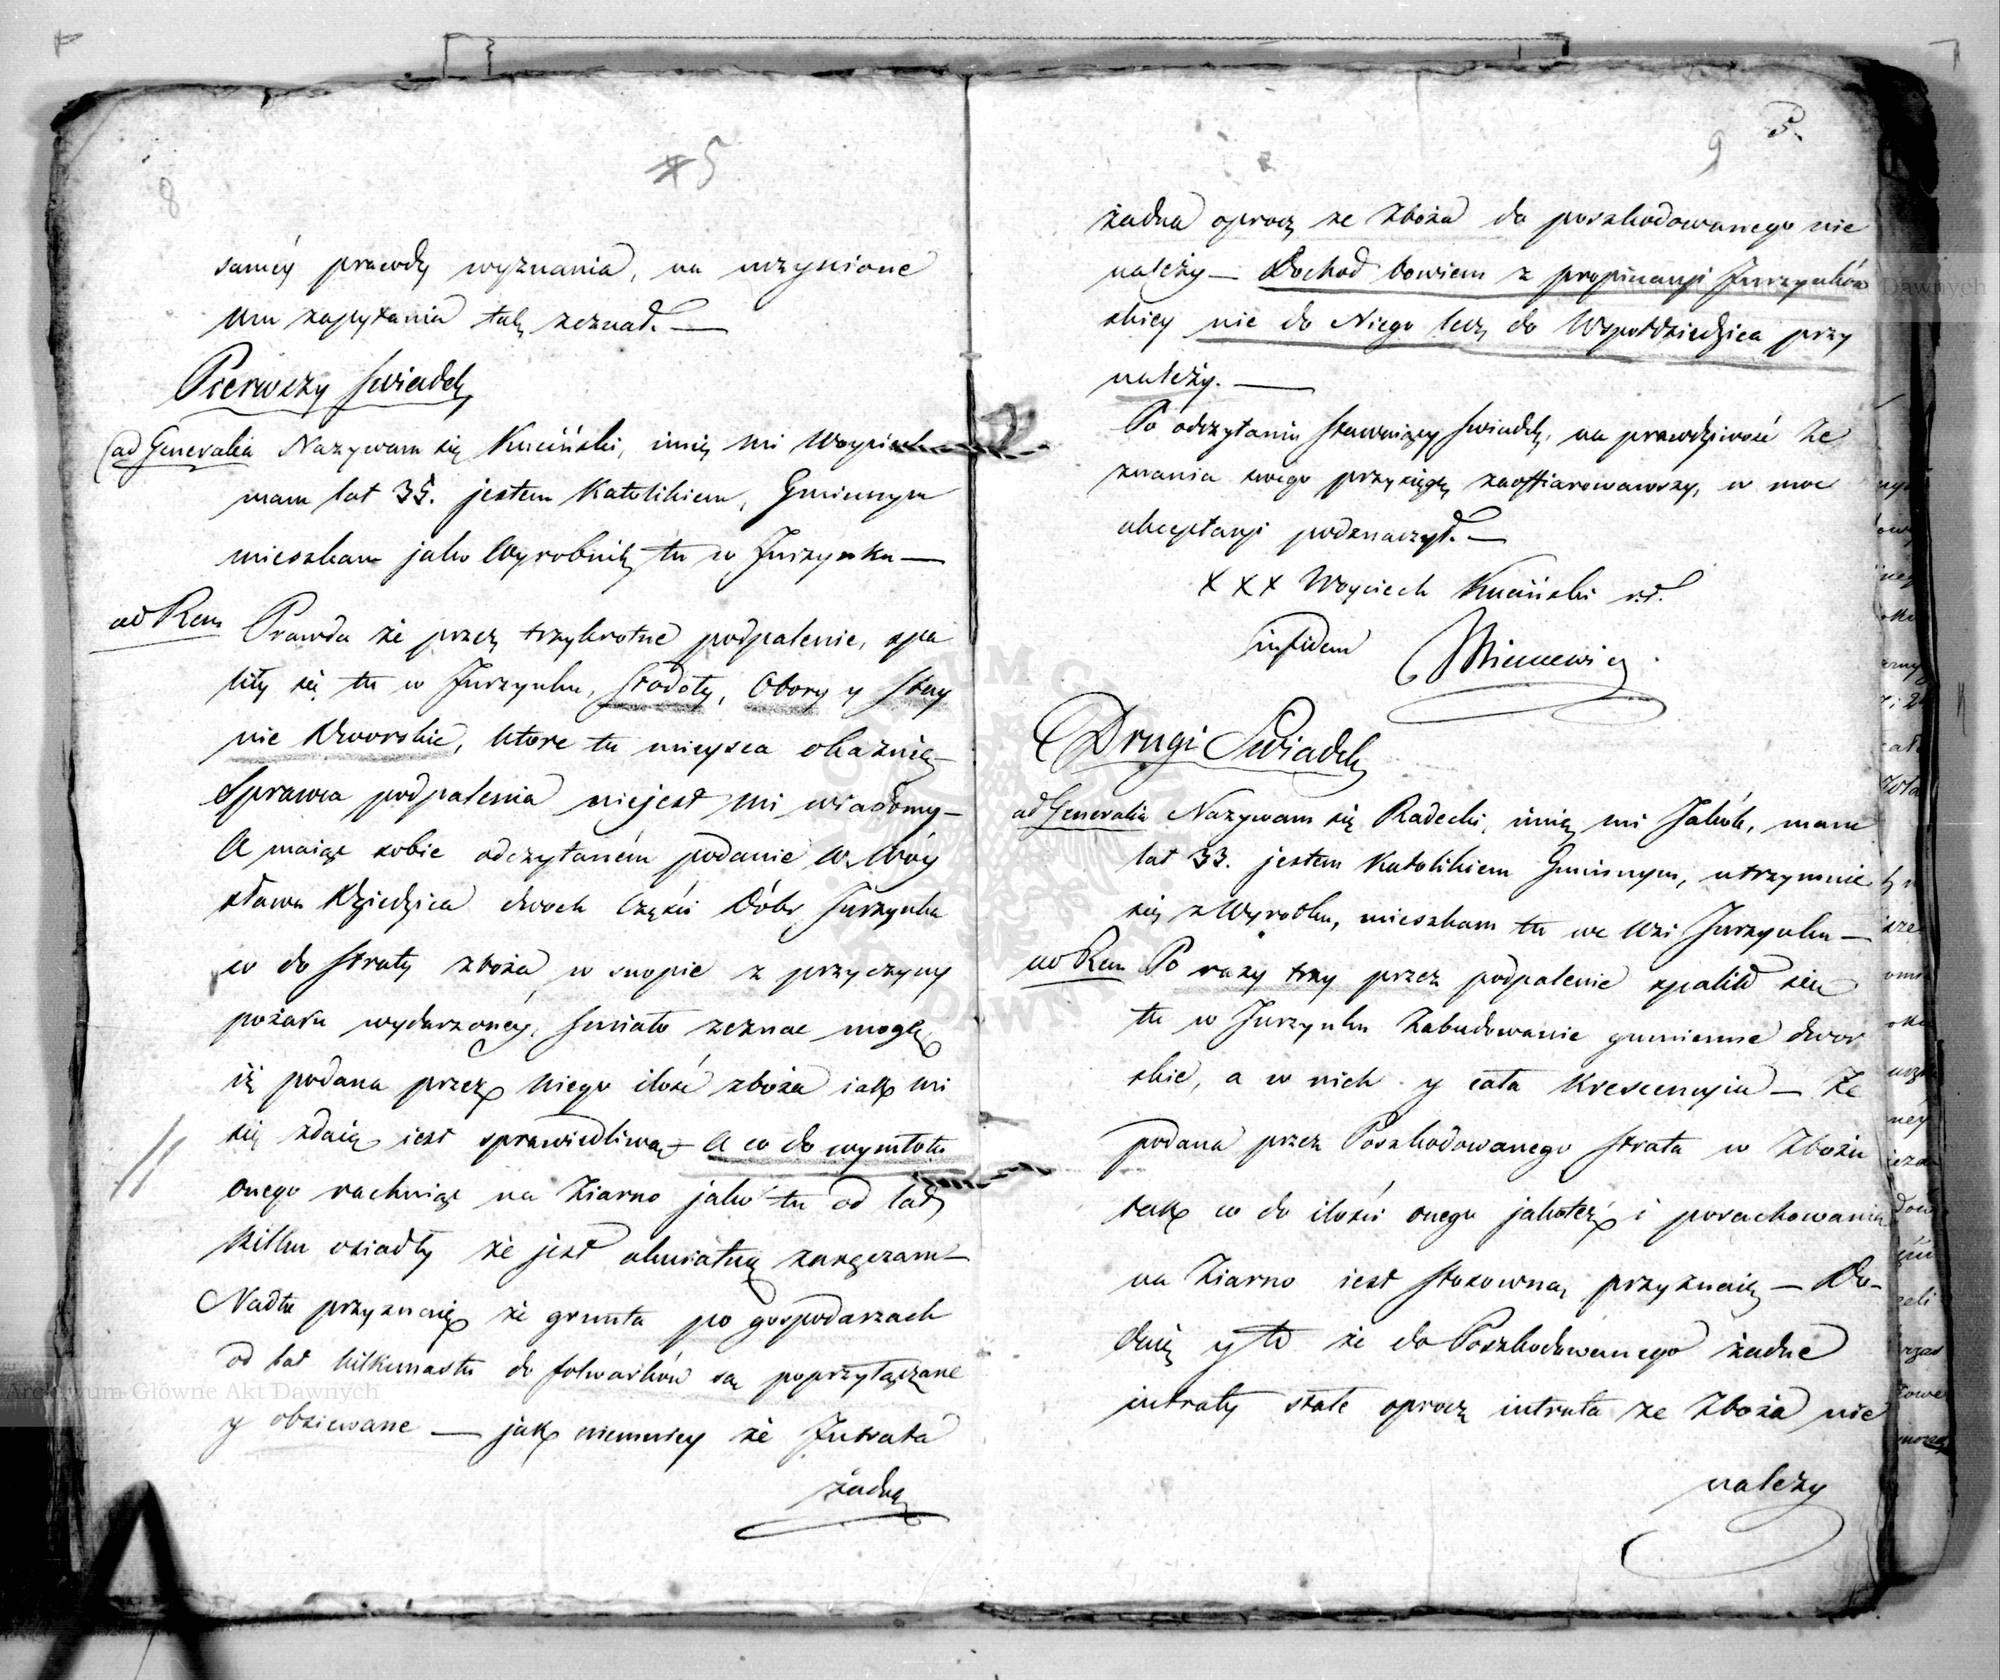 8
5
samey prawdy wyznania, na uczynione
mu zapytania tak zeznał. —
Pierwszy Swiadek
ad Generalia Nazywam się Kuciński, imię mi Woyciech
mam lat 35. jestem Katolikiem, Gminnym
mieszkam jako Wyrobnik tu w Jurzynku —
ad Rem Prawda że przez trzykrotne podpalenie, spa
liły się tu w Jurzynku, Stodoły, Obory y Stay
nie Dworskie, które tu mieysca okaznię —
Sprawca podpalenia niejest mi wiadomy —
A maiąc sobie odczytaném podanie W. Woy
sława Dziedzica dwoch Częsci Dóbr Jurzynka
co do straty zboża w snopie z przyczyny
pożaru wydarzoney, smiało zeznac mogę
iż podana przez niego ilość zboża iak mi
się zdaię iest sprawiedliwą — A co do wymłotu
onego rachuiąc na Ziarno jako tu od lat
kilku osiadły że jest akuratną zaręczam —
Nadto przyznaię że grunta po gospodarzach
od lat kilkunastu do folwarków są poprzyłączane
y obsiewane — jak niemniey że Intrata
żadna
9 5.
żadna oprocz ze Zboża do poszkodowanego nie
należy — Dochod bowiem z propinacyi Jurzynków
skiey nie do Niego lecz do Wspołdziedzica przy
należy. —
Po odczytaniu stawaiący Swiadek, na prawdziwość Ze
znania swego przysięgę zaoffiarowawszy, w moc
akceptacyi podznaczył. —
X X X Woyciech Kuciński
in fidem
Drugi Swiadek
ad Generalia Nazywam się Radecki, imię mi Jakób, mam
lat 33. jestem Katolikiem Gminnym, utrzymuie
się z Wyrobku, mieszkam tu we Wsi Jurzynku —
ad Rem Po razy trzy przez podpalenie spalił sie
tu w Jurzynku Zabudowanie gumienne dwor
skie, a w nich y cała Krescencyia — Że
podana przez Poszkodowanego strata w Zbożu
tak co do ilości onego jakoteż i porachowania
na Ziarno iest stosowną przyznaię — Do-
daię y to że do Poszkodowanego żadne
intraty stałe oprocz intrata ze Zboża nie
należy